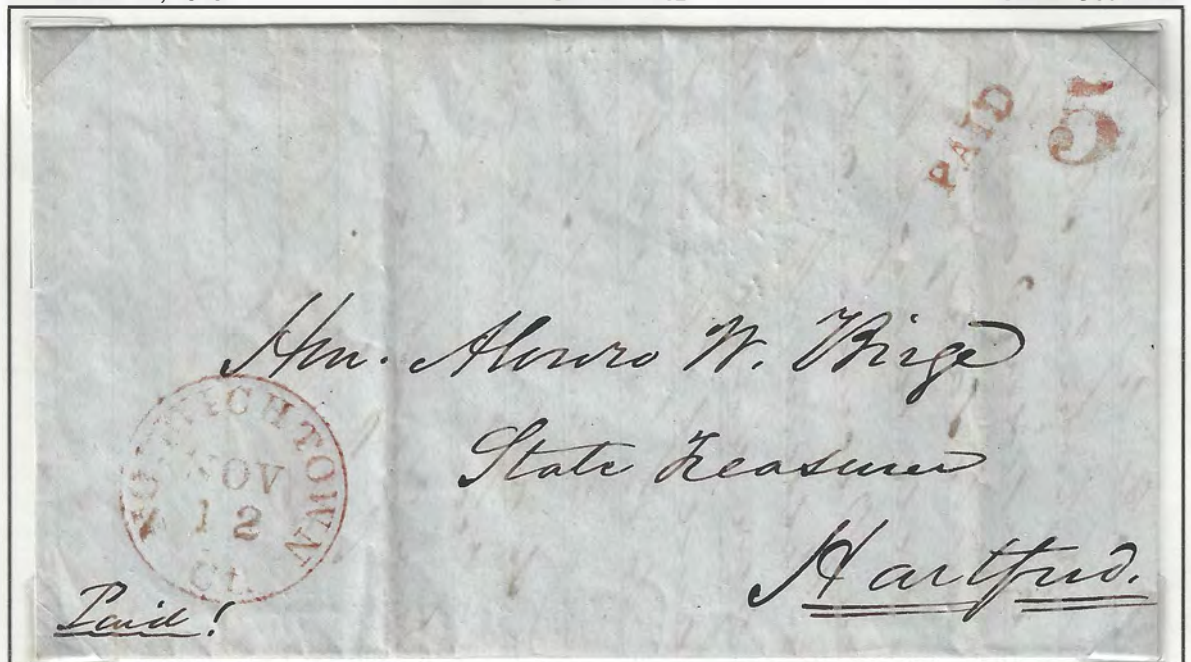 PAID 5
Hon. Alonzo W. Birge
State Treasurer
Hartford.
NORWICHTOWN
NOV
12
Ct.
Paid!